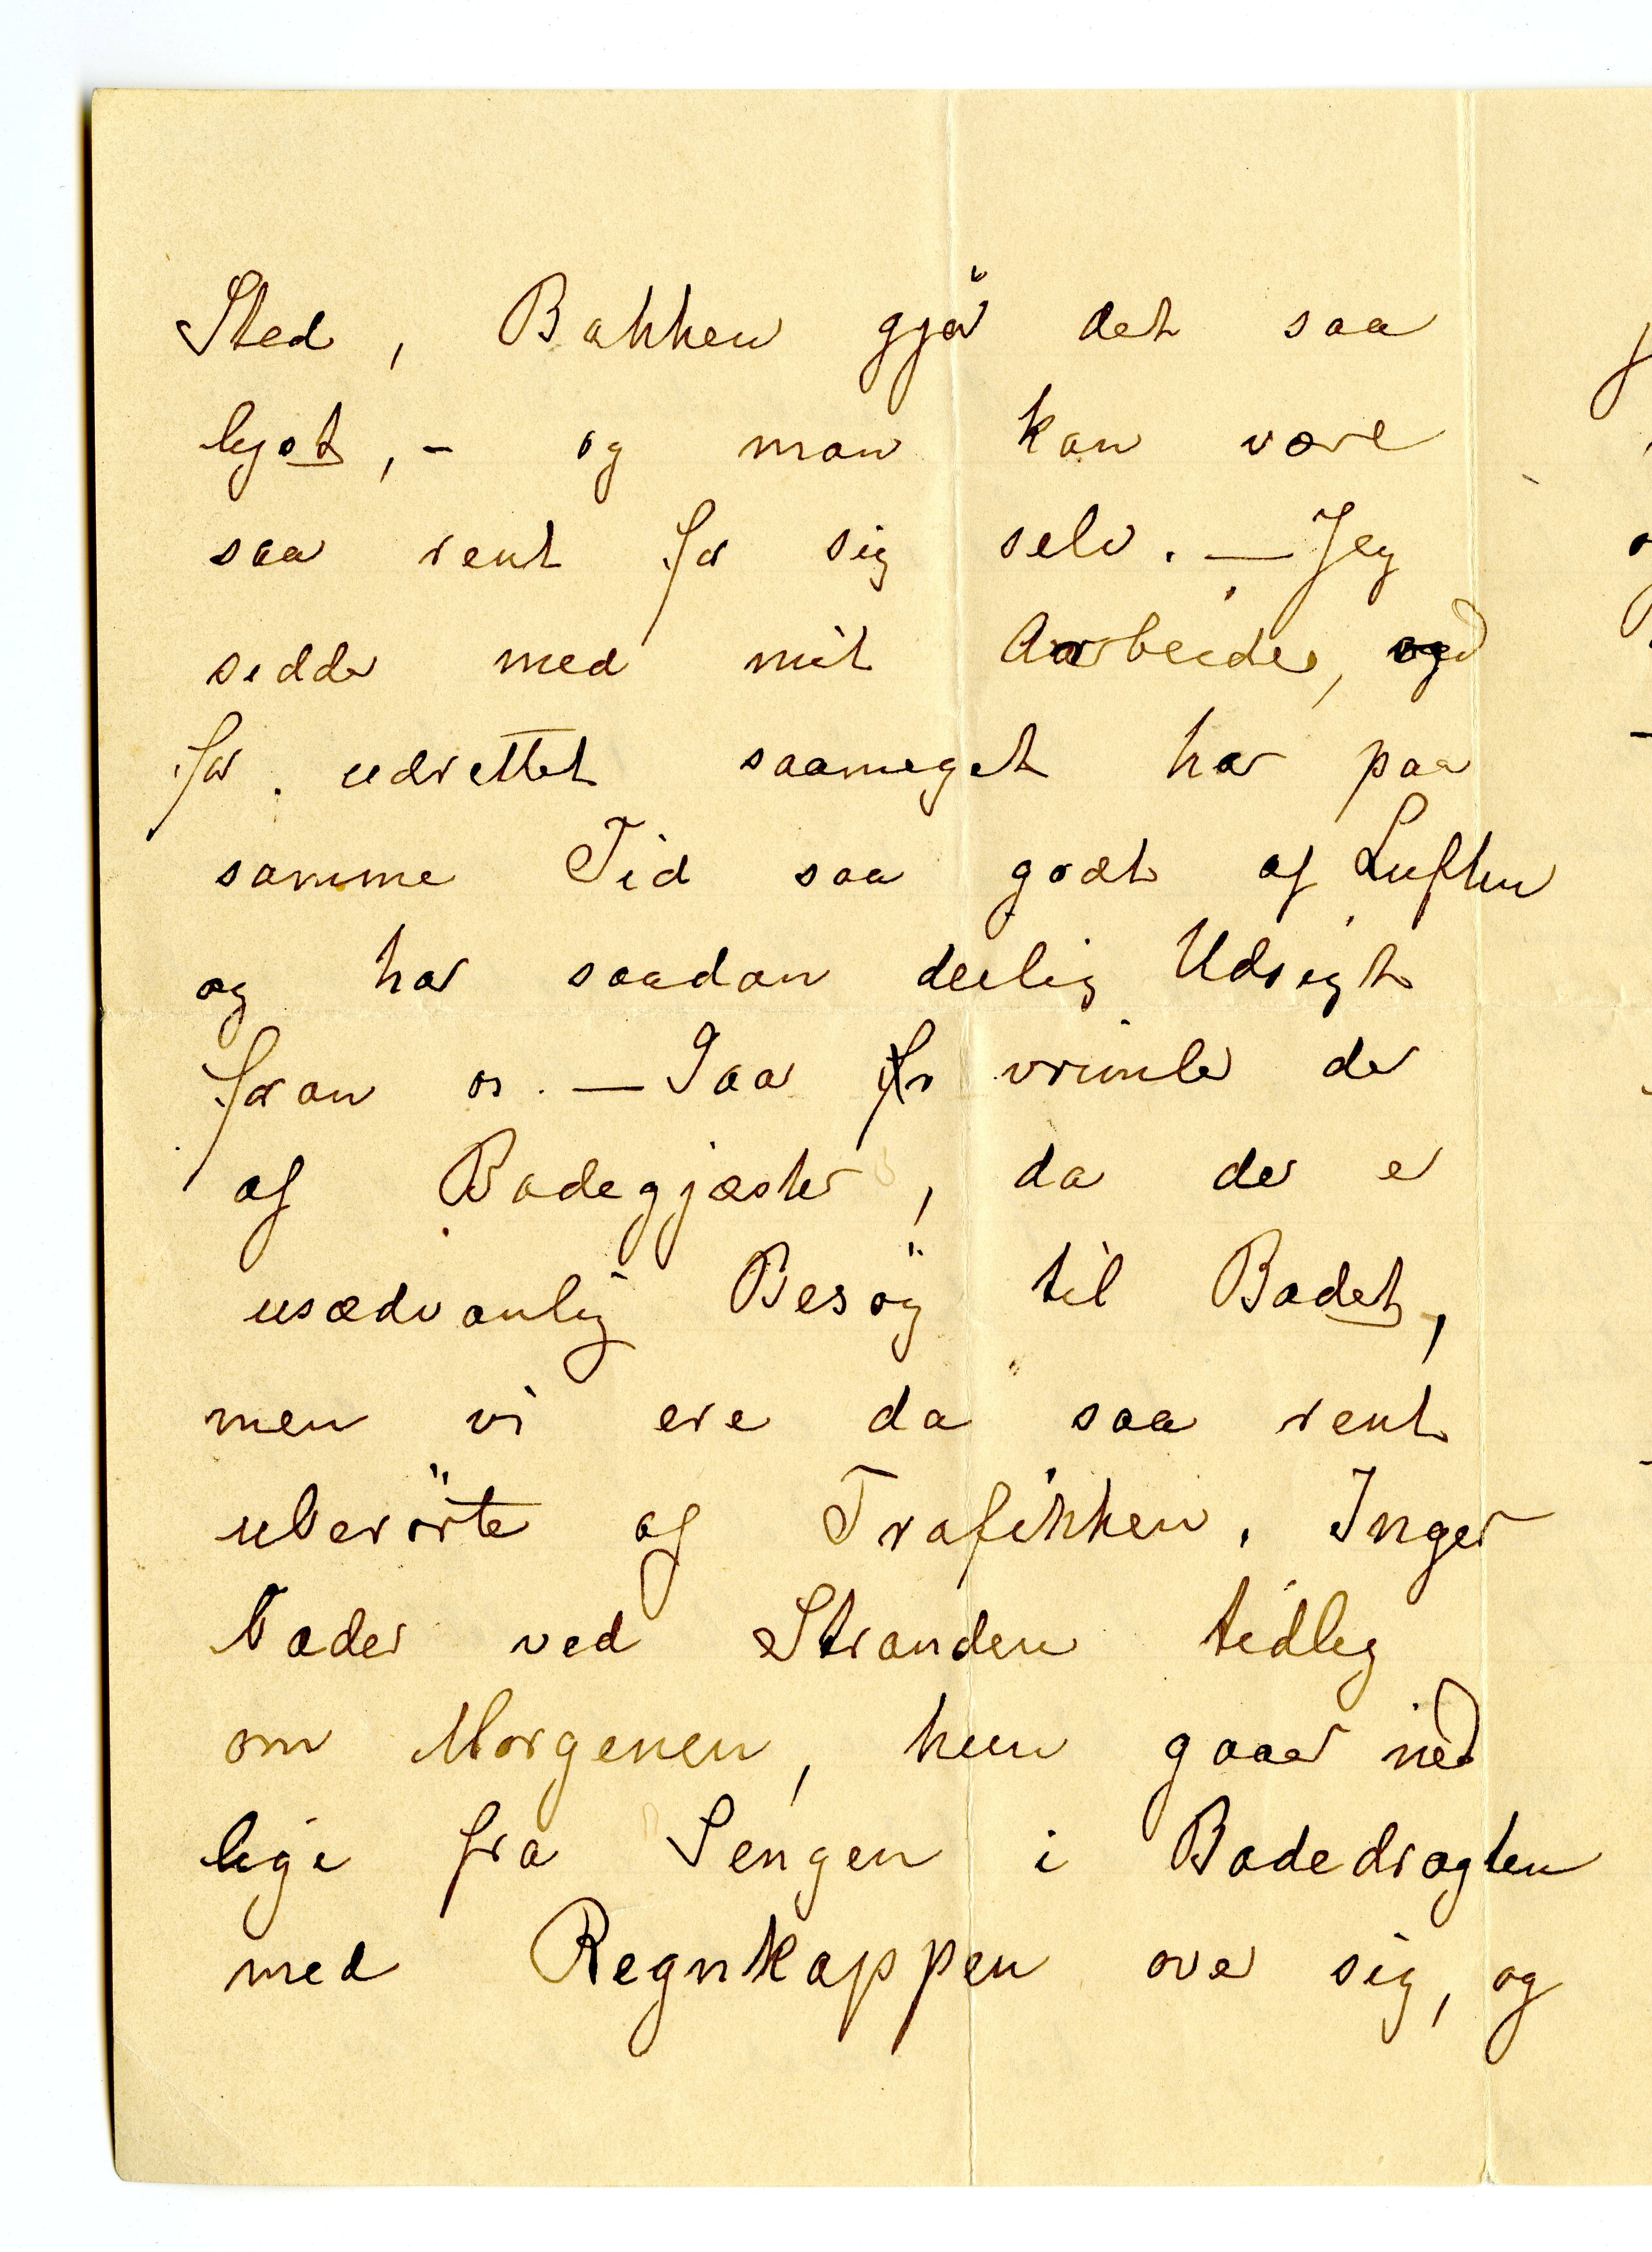 Sted, Bakken gjör det saa
lyst, - og man kan være
saa rent for sig selv. — Jeg
sidder med mit Arbeide,
for udrettet saameget har paa
samme Tid saa godt af Luften
og har saadan deilig Udsigt
foran os. — Saa vrimler der
af Badegjæster, da der er
usædvanlig Besög til Badet,
men vi ere da saa rent
uberörte af Trafikken. Inger
bader ved Stranden tidlig
om Morgenen, hun gaar ned
lige fra Sengen i Badedragten
med Regnkappen over sig, og